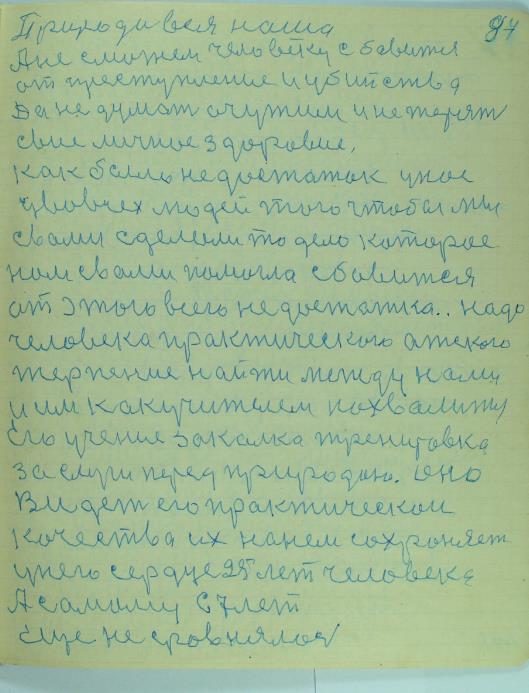 Природа вся наша 94
А не сможем человеку сбавится
от преступление и убийства
Да не думат очужим и не терят
свие личное здоровие,
как было недостаток у нас
увсех людей того чтобы мы
свами сделали то дело которое
нам свами помогла сбавится
от этого всего недостатка.. надо
человека практического атского
терпение найти между нами
и им как учителем похвалится
Его учение закалка тренировка
заслуги перед природаю. оно
Видет его практическои
качества их нанем сохроняет
унего сердце 25 лет человека
А самому 67 лет
еще не сровнялоя